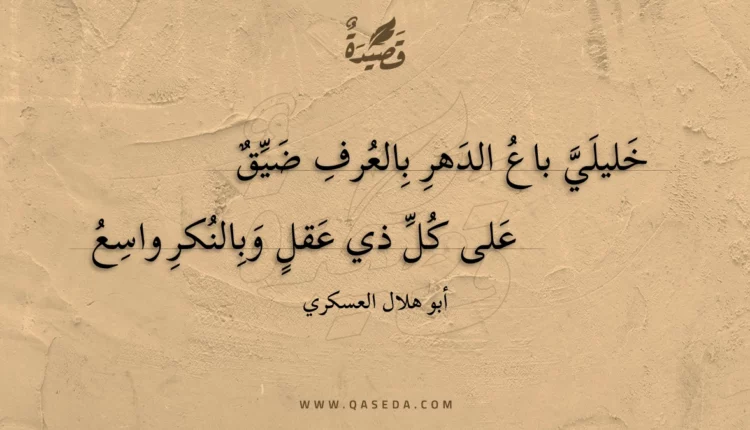 قَصِيدَةٌ
خَليلَيَّ باعُ الدَهرِ بِالعُرفِ ضَيِّقٌ
عَلى كُلِّ ذي عَقلٍ وَبِالنُكرِ واسِعُ
أبو هلال العسكري
WWW.QASEDA.COM